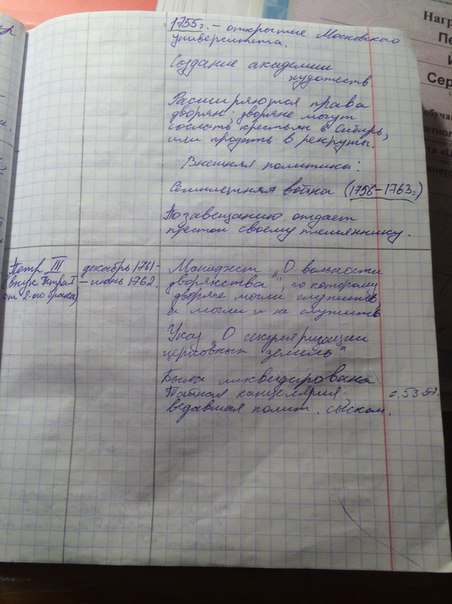 1755г. – открытие Московского
университета.
Создание академии
художеств.
Расширяются права
дворян: дворяне могут
сослать крестьян в Сибирь,
или продать в рекруты.
Внешняя политика:
Семилетняя война (1756–1763г.)
По завещанию отдает
престол своему племяннику.
Петр III
(внук Петра I
от 2-ого брака)
декабрь 1761-
– июнь 1762.
Манифест „О вольности
дворянства", по которому
дворяне могли служить,
а могли и не служить
Указ „О секуляризации
церковных земель"
Была ликвидирована
Тайная канцелярия
ведавшая полит. сыском.
Нагр
Пе
И
Сер